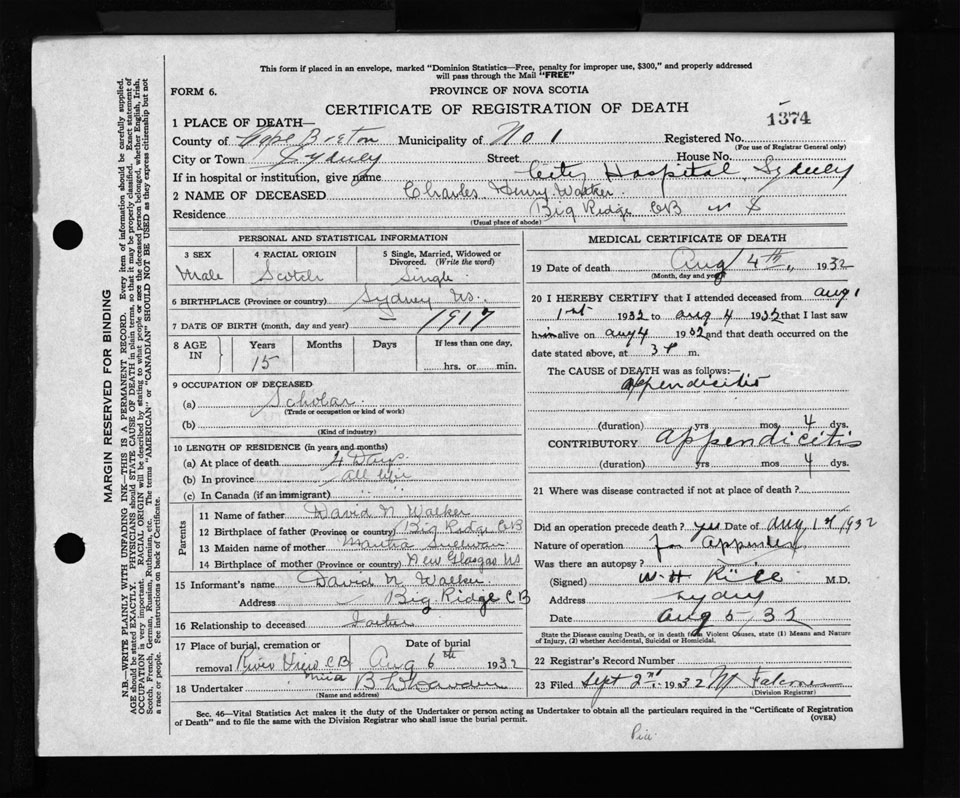 This form if placed in an envelope, marked "Dominion Statistics—Free, penalty for improper use, $300," and properly addressed
will pass through the Mail "FREE"
FORM 6.
PROVINCE OF NOVA SCOTIA
CERTIFICATE OF REGISTRATION OF DEATH
1374
1 PLACE OF DEATH—
County of Cape Breton Municipality of No 1 Registered No.
(For use of Registrar General only)
City or Town Sydney Street House No.
If in hospital or institution, give name City Hospital, Sydney
2 NAME OF DECEASED Charles Henry Walker
Residence Big Ridge CB N S
(Usual place of abode)
PERSONAL AND STATISTICAL INFORMATION
3 SEX Male
4 RACIAL ORIGIN Scotch
5 Single, Married, Widowed or Divorced. (Write the word) Single
6 BIRTHPLACE (Province or country) Sydney NS.
7 DATE OF BIRTH (month, day and year) — 1917
8 AGE IN Years Months Days If less than one day,
15 hrs. or min.
9 OCCUPATION OF DECEASED
(a) Scholar
(Trade or occupation or kind of work)
(b)
(Kind of industry)
10 LENGTH OF RESIDENCE (in years and months)
(a) At place of death 4 Days
(b) In province all life
(c) In Canada (if an immigrant) " "
Parents
11 Name of father David N Walker
12 Birthplace of father (Province or country) Big Ridge CB
13 Maiden name of mother Martha Sullivan
14 Birthplace of mother (Province or country) New Glasgow NS
15 Informant's name David N. Walker
Address Big Ridge CB
16 Relationship to deceased Father
17 Place of burial, cremation or removal River View CB
Date of burial Aug 6th 1932
18 Undertaker
(Name and address)
MEDICAL CERTIFICATE OF DEATH
19 Date of death Aug 4th, 1932
(Month, day and year)
20 I HEREBY CERTIFY that I attended deceased from Aug 1
1st 1932 to Aug 4 1932 that I last saw
him alive on Aug 4 1932 and that death occurred on the
date stated above, at 3 P m.
The CAUSE of DEATH was as follows:—
appendicitis
(duration) yrs mos 4 dys.
CONTRIBUTORY appendicitis
(duration) yrs mos 4 dys.
21 Where was disease contracted if not at place of death?
Did an operation precede death? yes Date of Aug 1st 1932
Nature of operation for Appendix
Was there an autopsy?
(Signed) W. H Rice M.D.
Address Sydney
Date Aug 5 / 32
State the Disease causing Death, or in death from Violent Causes, state (1) Means and Nature
of Injury, (2) whether Accidental, Suicidal or Homicidal.
22 Registrar's Record Number
23 Filed Sept 2nd 1932
(Division Registrar)
Sec. 46—Vital Statistics Act makes it the duty of the Undertaker or person acting as Undertaker to obtain all the particulars required in the "Certificate of Registration
of Death" and to file the same with the Division Registrar who shall issue the burial permit.
(OVER)
MARGIN RESERVED FOR BINDING
N.B.—WRITE PLAINLY WITH UNFADING INK—THIS IS A PERMANENT RECORD. Every item of information should be carefully supplied.
AGE should be stated EXACTLY. PHYSICIANS should STATE CAUSE OF DEATH in plain terms, so that it may be properly classified. Exact statement of
OCCUPATION is very important. RACIAL ORIGIN will be described by stating to what people or race the deceased person belonged, whether English, Irish,
Scotch, French, German, Russian, Ruthenian, etc. The terms "AMERICAN" or "CANADIAN" SHOULD NOT BE USED as they express citizenship but not
a race or people. See instructions on back of Certificate.